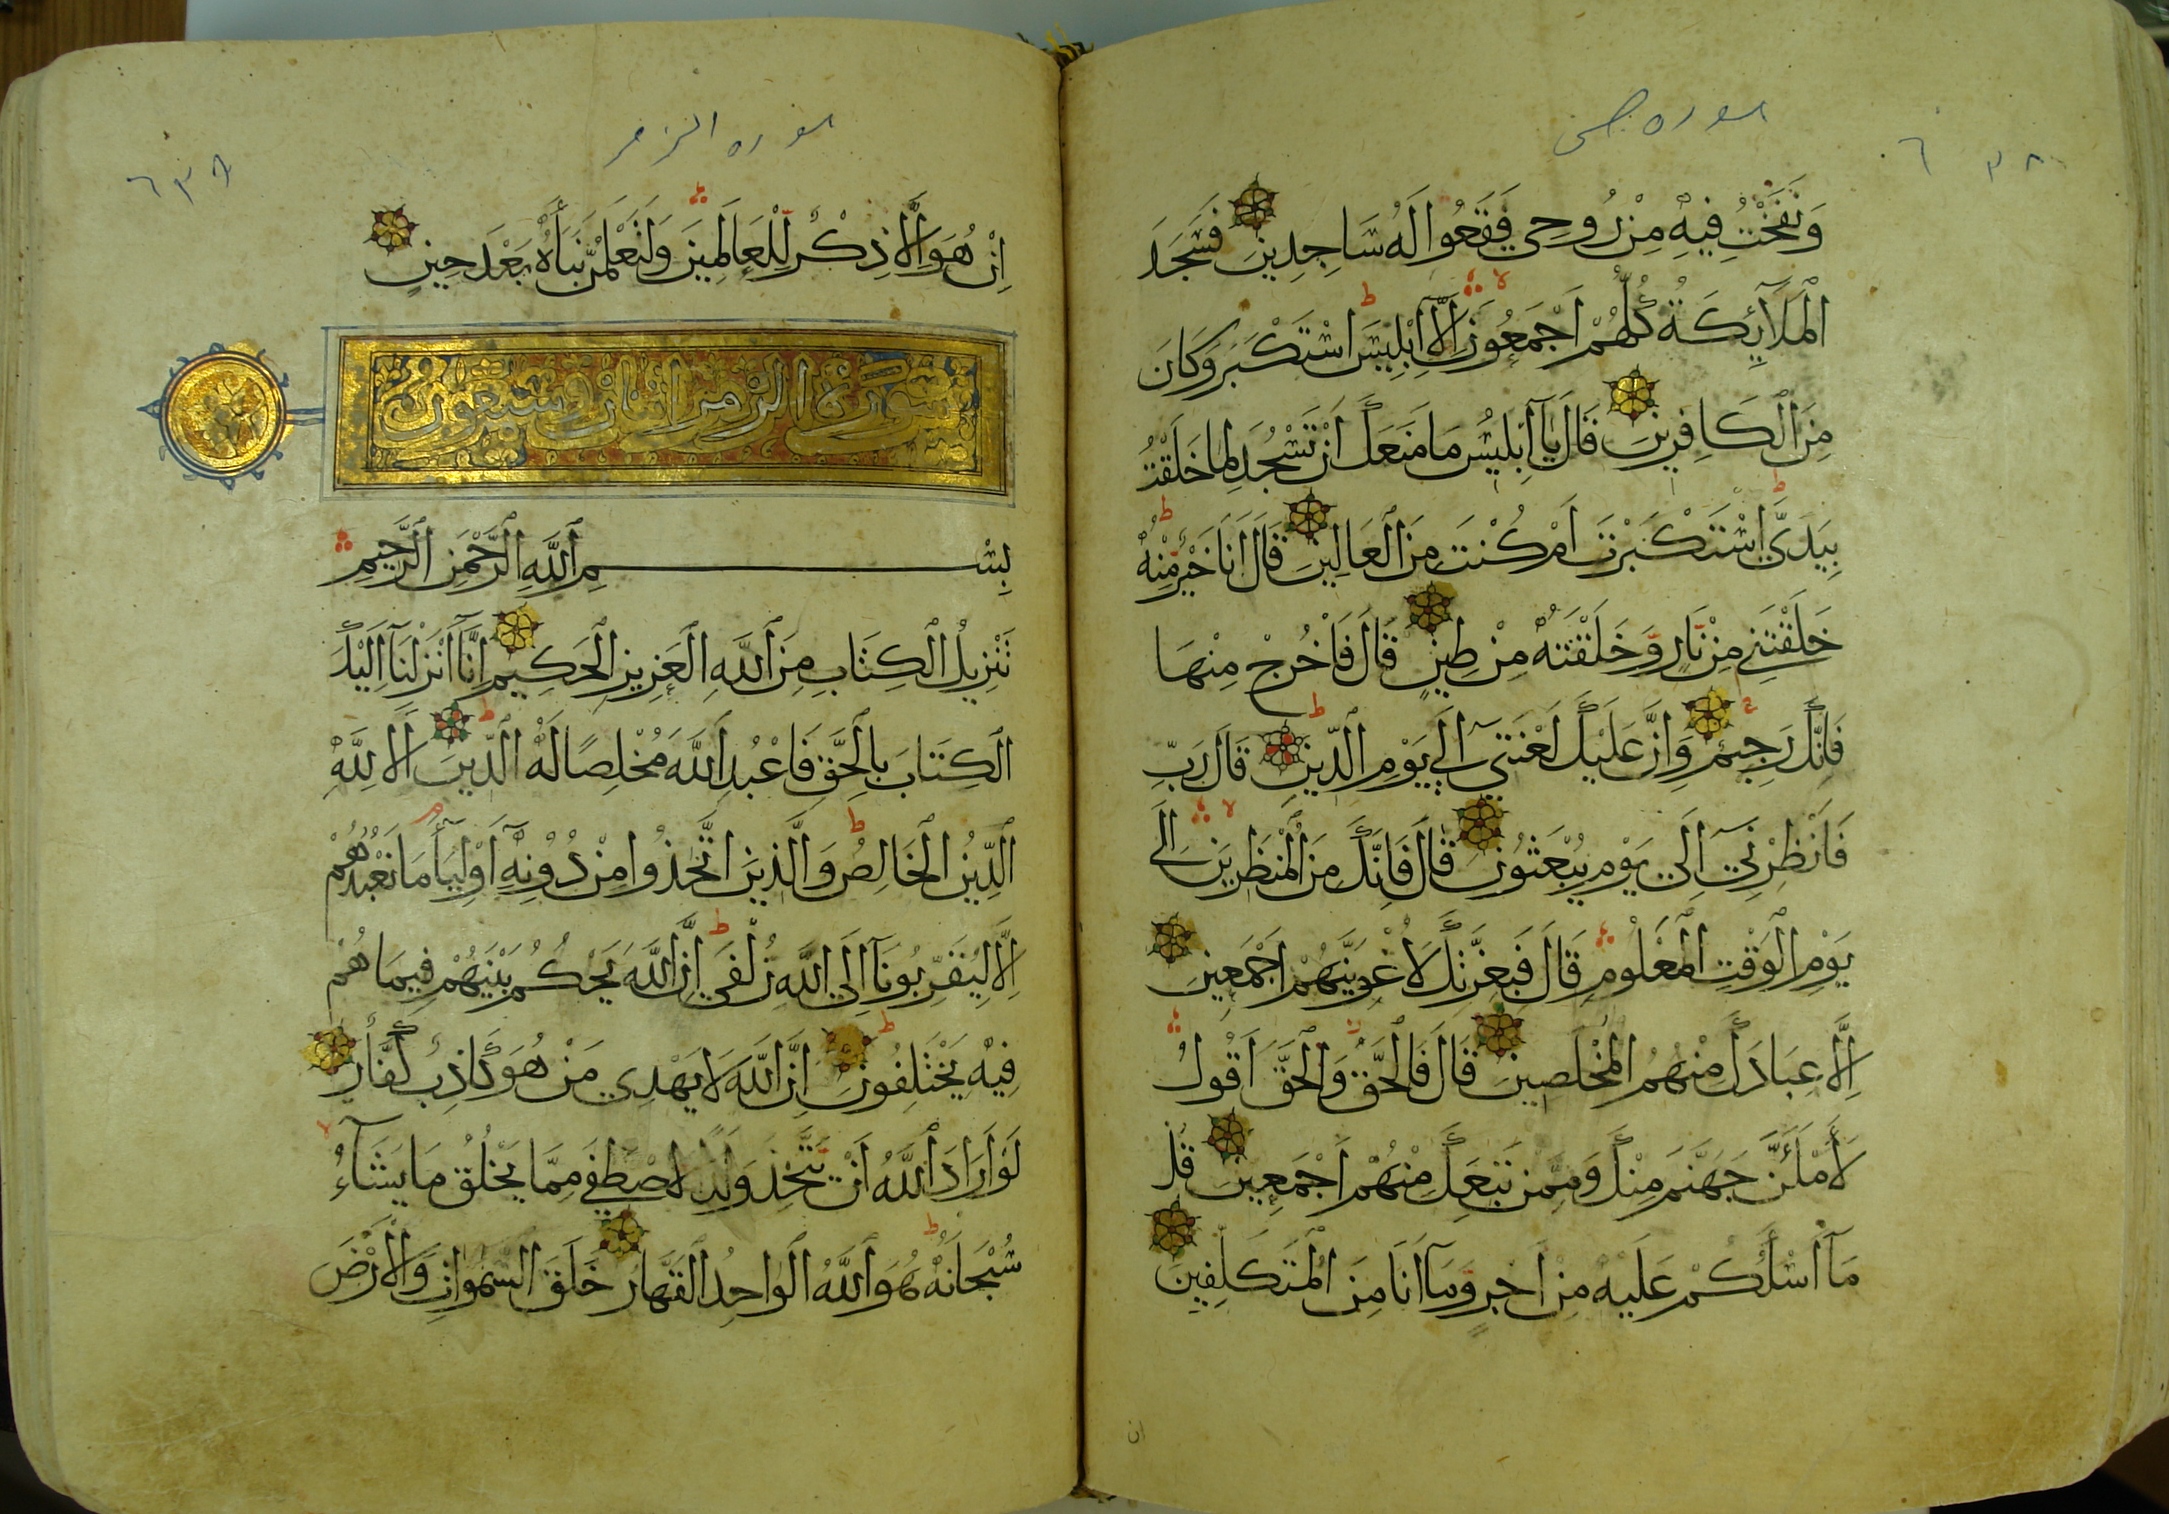 سوره ص
٦٣٨
وَنَفَخْتُ فِيهِ مِنْ رُوحِي فَقَعُوا لَهُ سَاجِدِينَ فَسَجَدَ
الْمَلَآئِكَةُ كُلُّهُمْ اَجْمَعُونَ اِلَّآ اِبْلِيسَ اسْتَكْبَرَ وَكَانَ
مِنَ الْكَافِرِينَ قَالَ يَآ اِبْلِيسُ مَا مَنَعَكَ اَنْ تَسْجُدَ لِمَا خَلَقْتُ
بِيَدَيَّ اسْتَكْبَرْتَ اَمْ كُنْتَ مِنَ الْعَالِينَ قَالَ اَنَا خَيْرٌ مِنْهُ
خَلَقْتَنِي مِنْ نَارٍ وَخَلَقْتَهُ مِنْ طِينٍ قَالَ فَاخْرُجْ مِنْهَا
فَاِنَّكَ رَجِيمٌ وَاِنَّ عَلَيْكَ لَعْنَتِي اِلَى يَوْمِ الدِّينِ قَالَ رَبِّ
فَاَنْظِرْنِي اِلَى يَوْمِ يُبْعَثُونَ قَالَ فَاِنَّكَ مِنَ الْمُنْظَرِينَ اِلَى
يَوْمِ الْوَقْتِ الْمَعْلُومِ قَالَ فَبِعِزَّتِكَ لَاُغْوِيَنَّهُمْ اَجْمَعِينَ
اِلَّا عِبَادَكَ مِنْهُمُ الْمُخْلَصِينَ قَالَ فَالْحَقُّ وَالْحَقَّ اَقُولُ
لَاَمْلَئَنَّ جَهَنَّمَ مِنْكَ وَمِمَّنْ تَبِعَكَ مِنْهُمْ اَجْمَعِينَ قُلْ
مَآ اَسْئَلُكُمْ عَلَيْهِ مِنْ اَجْرٍ وَمَآ اَنَا مِنَ الْمُتَكَلِّفِينَ
ان
سوره الزمر
٦٣٩
اِنْ هُوَ اِلَّا ذِكْرٌ لِلْعَالَمِينَ وَلَتَعْلَمُنَّ نَبَأَهُ بَعْدَ حِينٍ
سورة الزمر اثنان وسبعون
بِسْمِ اللَّهِ الرَّحْمَنِ الرَّحِيمِ
تَنْزِيلُ الْكِتَابِ مِنَ اللَّهِ الْعَزِيزِ الْحَكِيمِ اِنَّآ اَنْزَلْنَآ اِلَيْكَ
الْكِتَابَ بِالْحَقِّ فَاعْبُدِ اللَّهَ مُخْلِصًا لَهُ الدِّينَ اَلَا لِلَّهِ
الدِّينُ الْخَالِصُ وَالَّذِينَ اتَّخَذُوا مِنْ دُونِهِ اَوْلِيَآءَ مَا نَعْبُدُهُمْ
اِلَّا لِيُقَرِّبُونَآ اِلَى اللَّهِ زُلْفَى اِنَّ اللَّهَ يَحْكُمُ بَيْنَهُمْ فِيمَا هُمْ
فِيهِ يَخْتَلِفُونَ اِنَّ اللَّهَ لَا يَهْدِي مَنْ هُوَ كَاذِبٌ كَفَّارٌ
لَوْ اَرَادَ اللَّهُ اَنْ يَتَّخِذَ وَلَدًا لَاصْطَفَى مِمَّا يَخْلُقُ مَا يَشَآءُ
سُبْحَانَهُ هُوَ اللَّهُ الْوَاحِدُ الْقَهَّارُ خَلَقَ السَّمٰوَاتِ وَالْاَرْضَ